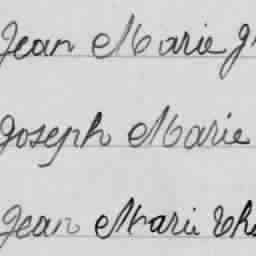 Jean Marie
Joseph Marie
Jean Marie